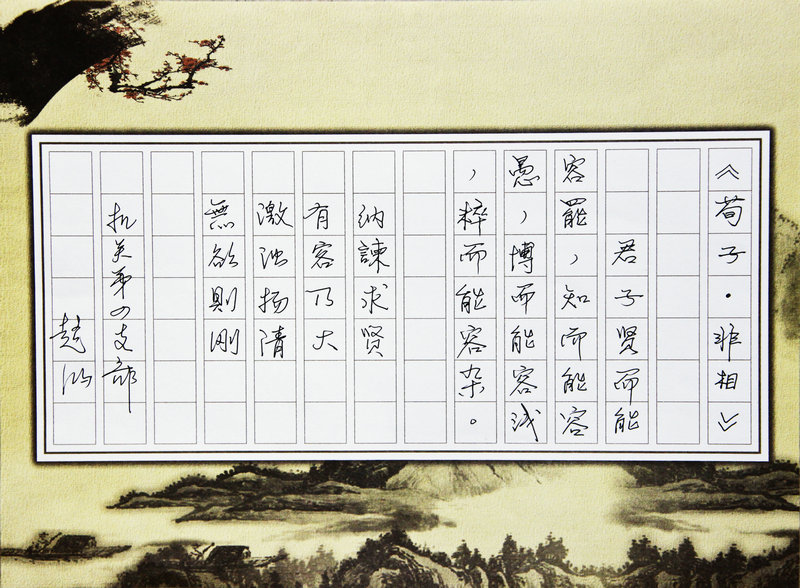 《荀子·非相》
君子贤而能
容罷，知而能容
愚，博而能容浅
，粹而能容杂。
纳諫求贤
有容乃大
激浊扬清
無欲則刚
机关第四支部